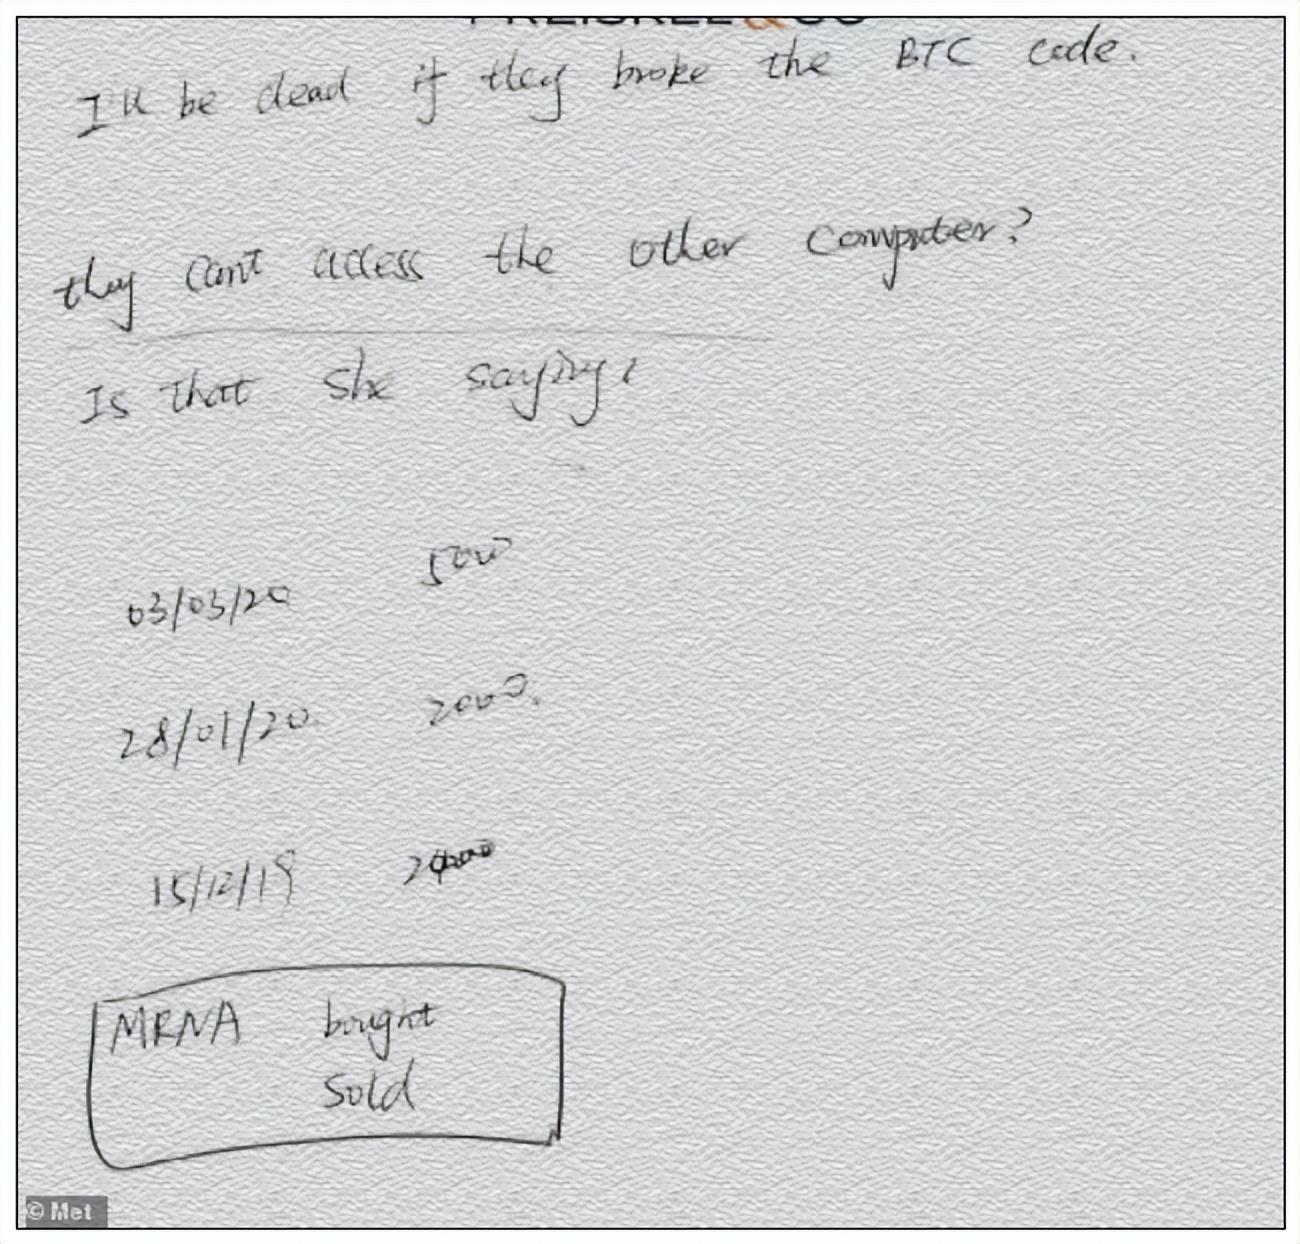 I'll be dead if they broke the BTC code.
they can't access the other computer?
Is that she saying?
03/03/20 5000
28/01/20 2000.
15/12/19
MRNA bought
sold
© Met